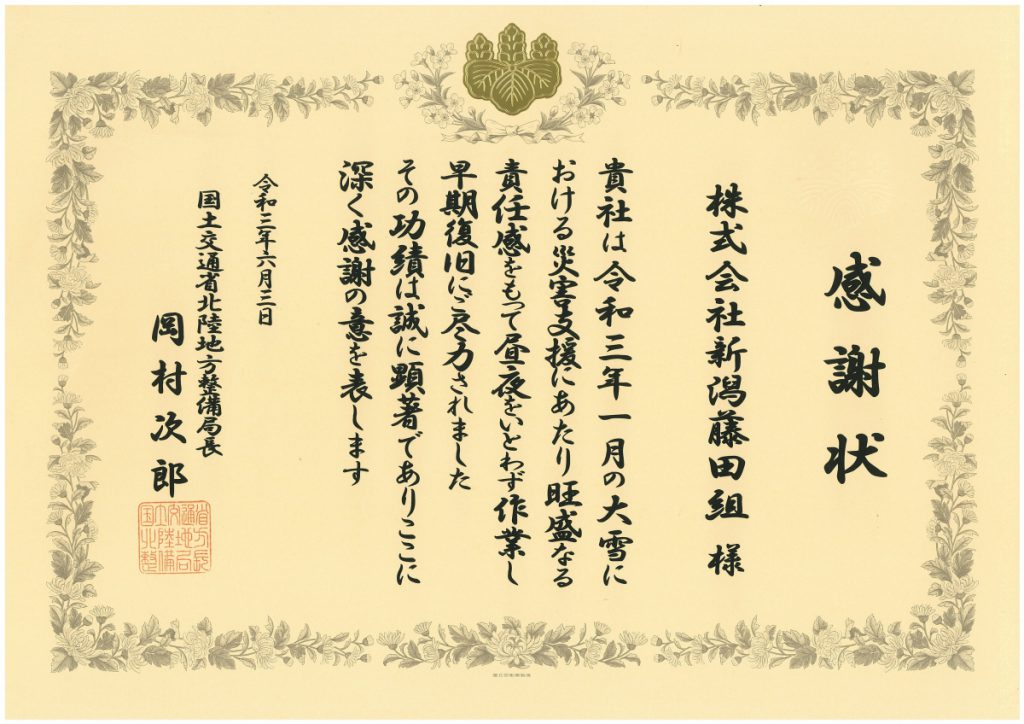 感謝状
株式会社新潟藤田組 様
貴社は令和三年一月の大雪に
おける災害支援にあたり旺盛なる
責任感をもって昼夜をいとわず作業し
早期復旧にご尽力されました
その功績は誠に顕著でありここに
深く感謝の意を表します
令和三年六月三日
国土交通省北陸地方整備局長
岡村次郎